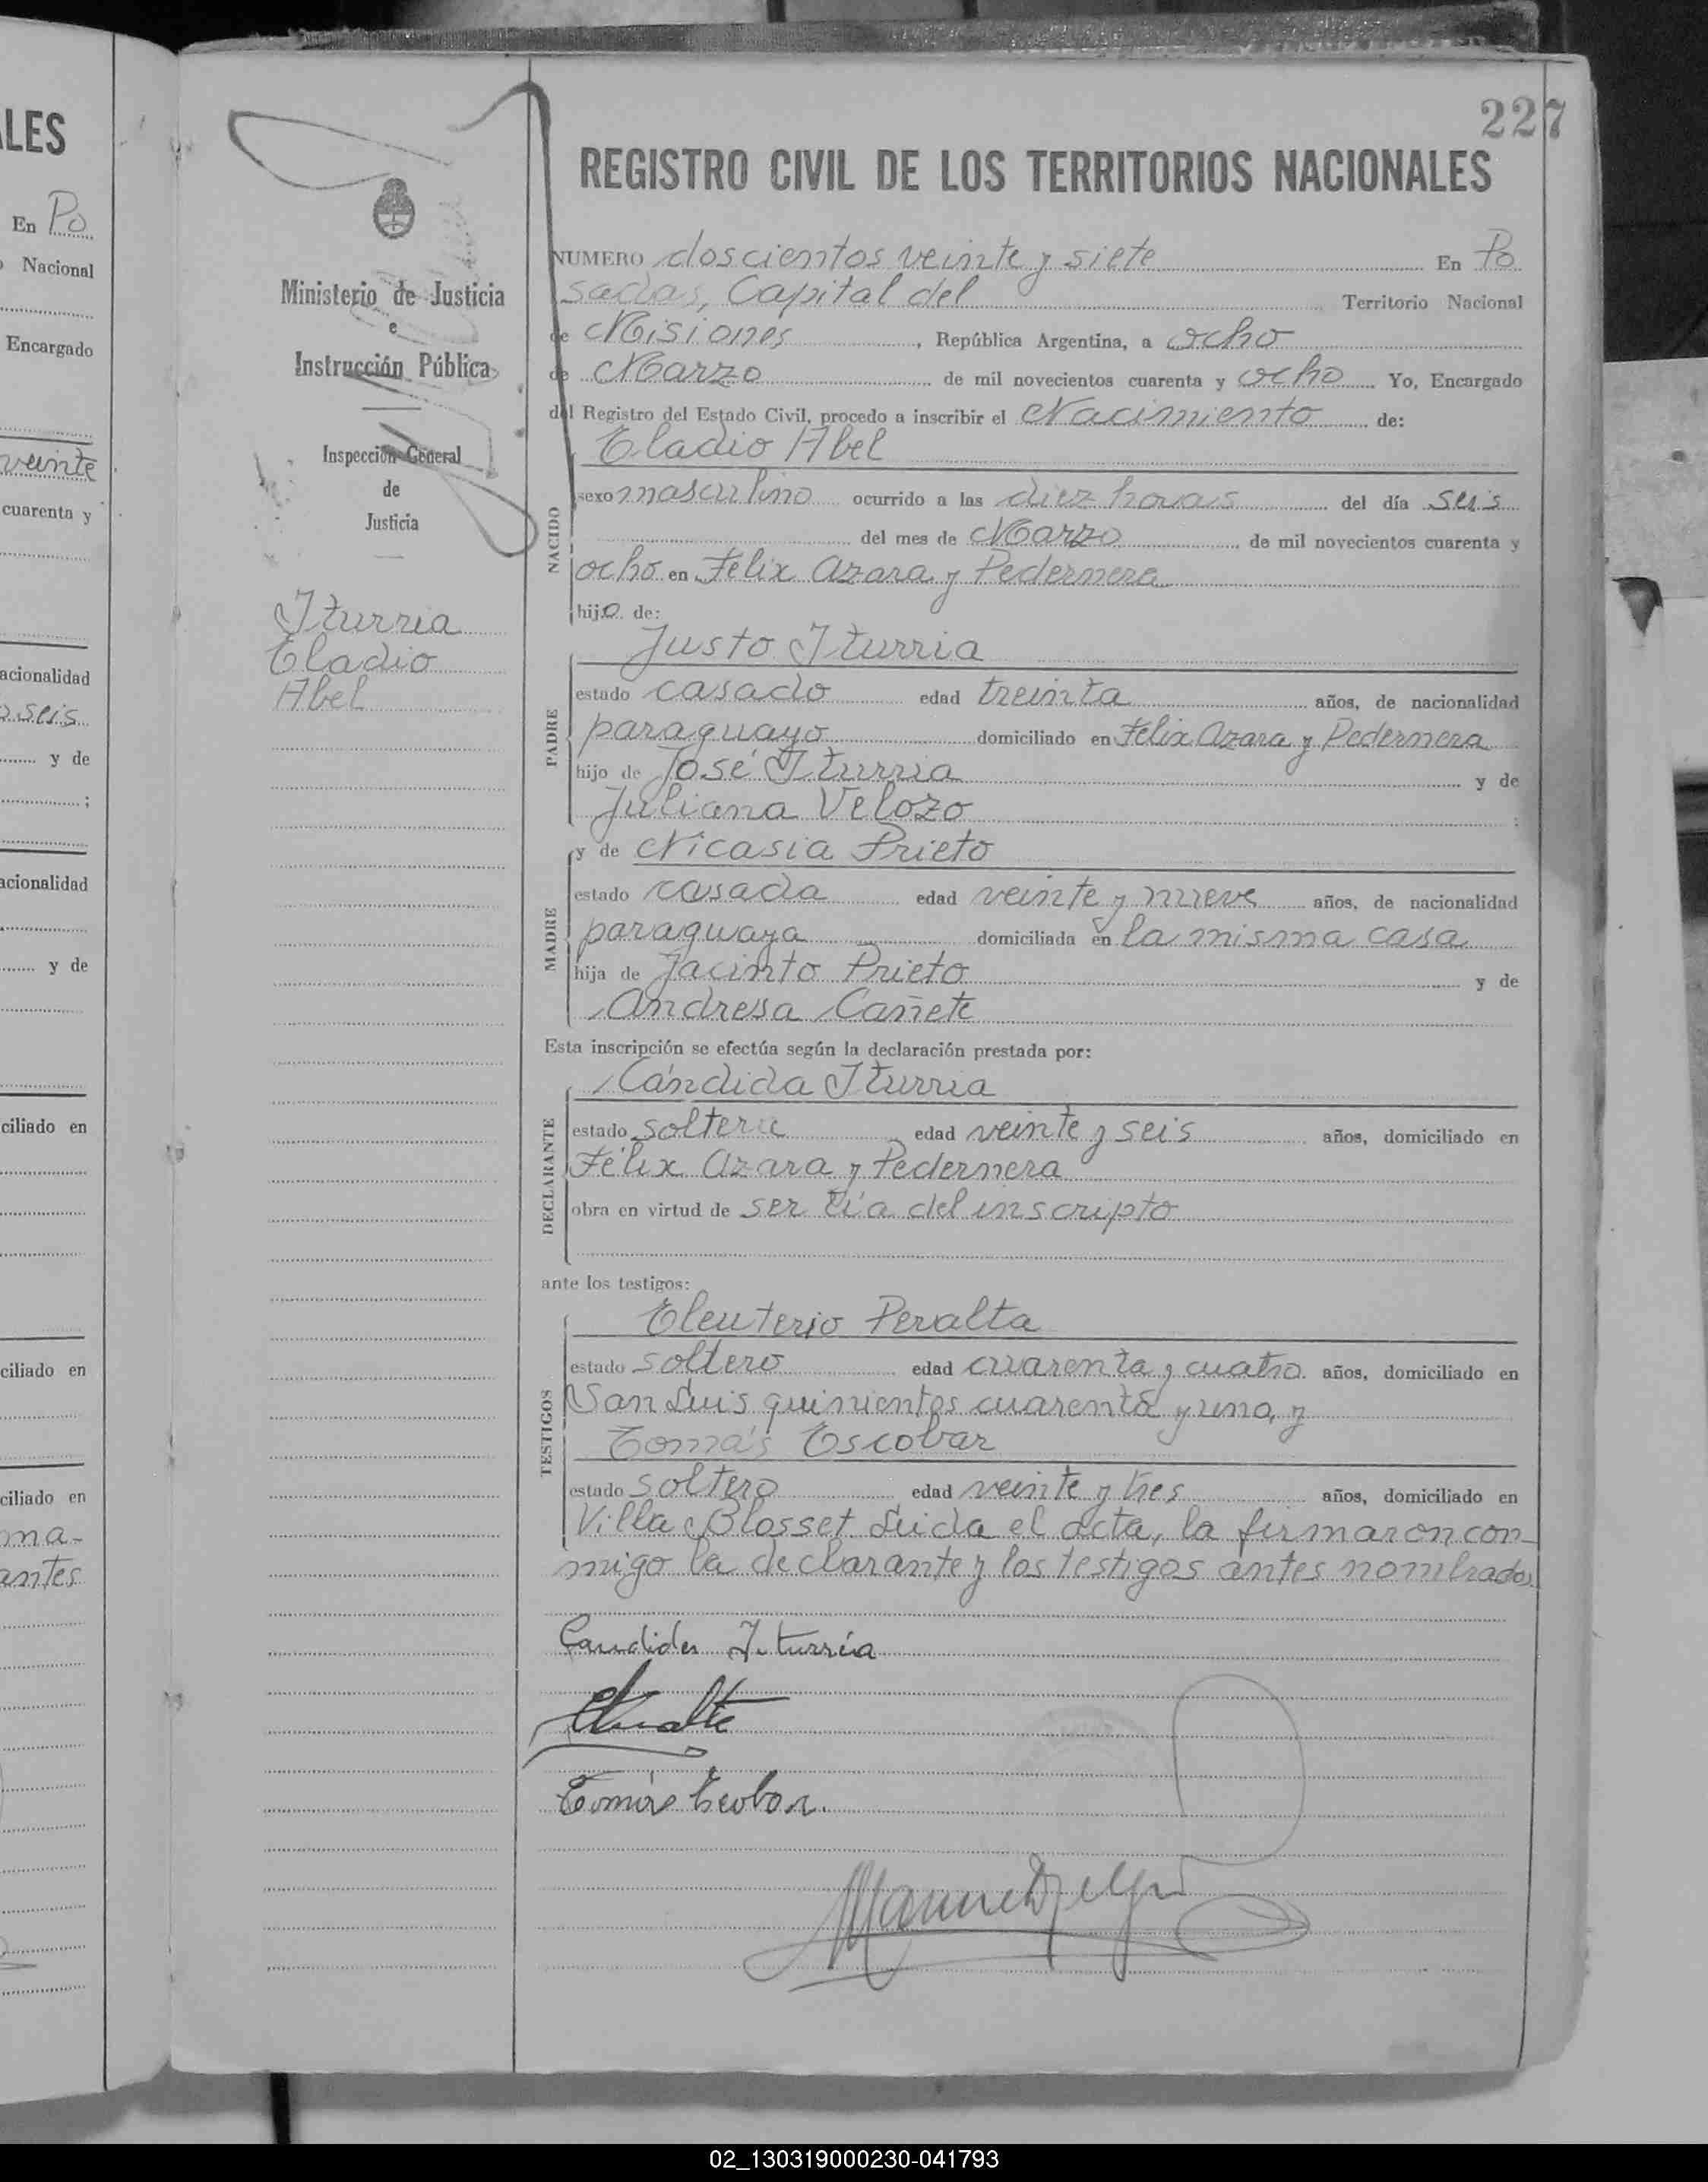 ALES
En Po
Nacional
Encargado
veinte
cuarenta y
acionalidad
seis
y de
;
acionalidad
y de
ciliado en
ciliado en
ciliado en
ma-
antes
227
REGISTRO CIVIL DE LOS TERRITORIOS NACIONALES
Ministerio de Justicia
e
Instrucción Pública
Inspección General
de
Justicia
Iturria
Eladio
Abel
NUMERO doscientos veinte y siete En Po
sadas, Capital del Territorio Nacional
de Misiones, República Argentina, a ocho
de Marzo de mil novecientos cuarenta y ocho Yo, Encargado
del Registro del Estado Civil, procedo a inscribir el Nacimiento de:
NACIDO
Eladio Abel
sexo masculino ocurrido a las diez horas del día seis
del mes de Marzo, de mil novecientos cuarenta y
ocho en Félix Azara y Pedernera
hijo de:
PADRE
Justo Iturria
estado casado edad treinta años, de nacionalidad
paraguayo domiciliado en Félix Azara y Pedernera
hijo de José Iturria y de
Juliana Velozo ;
MADRE
y de Nicasia Prieto
estado casada edad veinte y nueve años, de nacionalidad
paraguaya domiciliada en la misma casa
hija de Jacinto Prieto y de
Andresa Cañete
Esta inscripción se efectúa según la declaración prestada por:
DECLARANTE
Cándida Iturria
estado soltera edad veinte y seis años, domiciliado en
Félix Azara y Pedernera
obra en virtud de ser tía del inscripto
ante los testigos:
TESTIGOS
Eleuterio Peralta
estado soltero edad cuarenta y cuatro años, domiciliado en
San Luis quinientos cuarenta y uno, y
Tomás Escobar
estado soltero edad veinte y tres años, domiciliado en
Villa Blosset Leida el acta, la firmaron con-
migo la declarante y los testigos antes nombrados
Candida Iturria
EPeralta
Tomás Escobar.
02_130319000230-041793